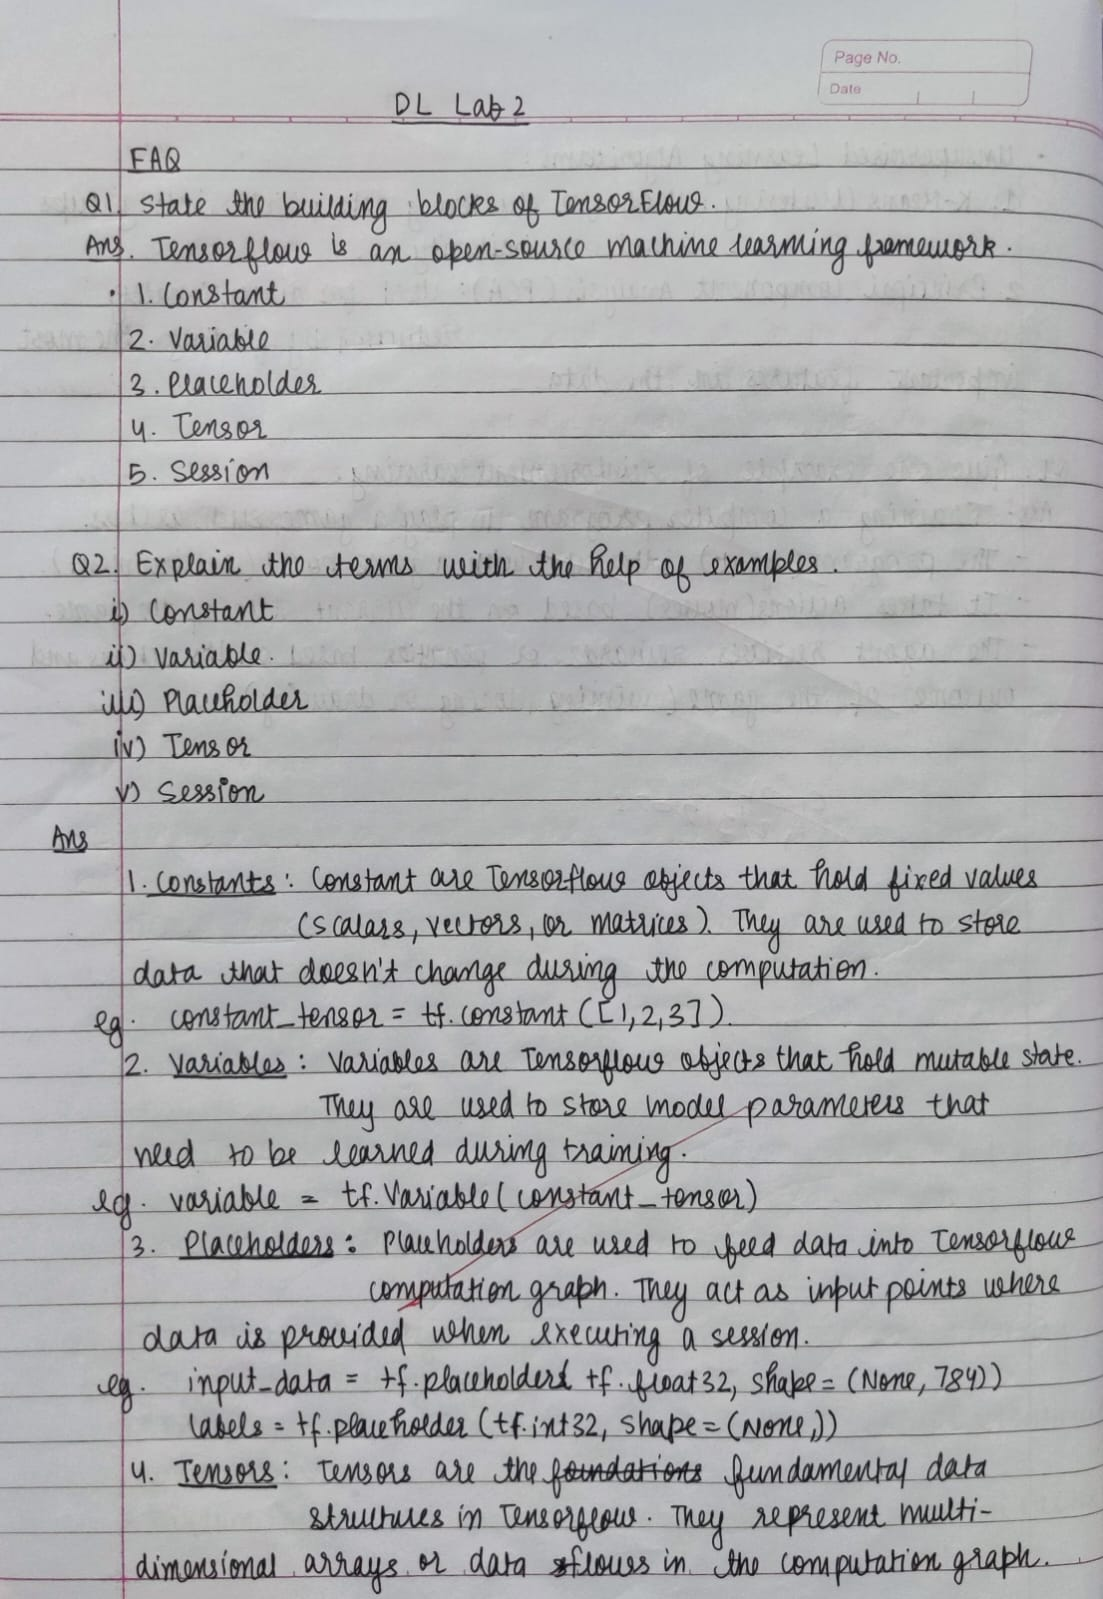 Page No.
Date
DL Lab 2
FAQ
Q1. State the building blocks of TensorFlow.
Ans. Tensorflow is an open-source machine learning framework.
1. Constant
2. Variable
3. Placeholder
4. Tensor
5. Session
Q2. Explain the terms with the help of examples.
i) Constant
ii) Variable.
iii) Placeholder
iv) Tensor
v) Session
Ans
1. Constants : Constant are Tensorflow objects that hold fixed values
(scalars, vectors, or matrices). They are used to store
data that doesn't change during the computation.
eg. constant_tensor = tf.constant ([1,2,3]).
2. Variables : Variables are Tensorflow objects that hold mutable state.
They are used to store model parameters that
need to be learned during training.
eg. variable = tf.Variable(constant_tensor)
3. Placeholders : Placeholders are used to feed data into Tensorflow
computation graph. They act as input points where
data is provided when executing a session.
eg. input_data = tf.placeholder( tf.float32, shape = (None, 784))
labels = tf.placeholder (tf.int32, shape = (None,))
4. Tensors : Tensors are the foundations fundamental data
structures in Tensorflow. They represent multi-
dimensional arrays or data flows in the computation graph.